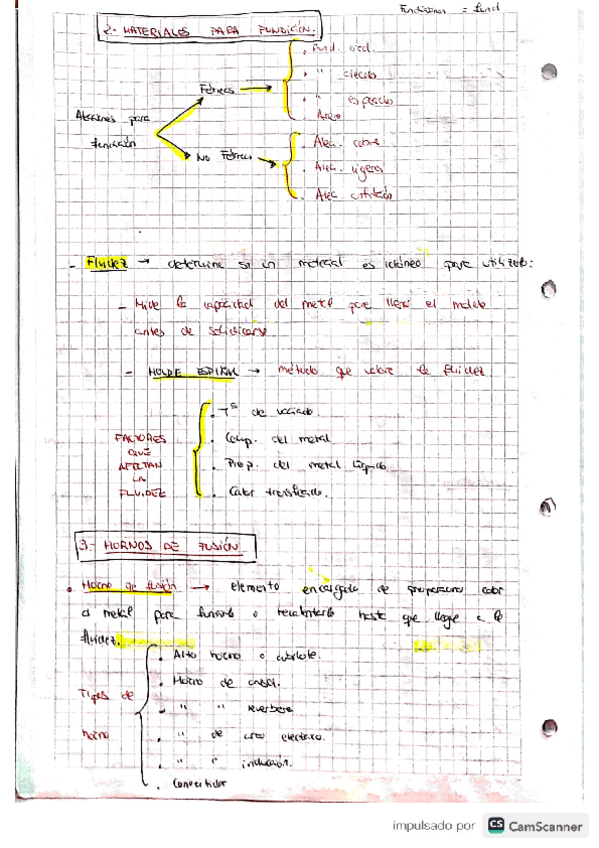 2.- MATERIALES PARA FUNDICIÓN.
Aleaciones para
fundición
Férreas
. Fund. ord.
. " "
. " especiales
. Acero
No Férreas
. Alea. cobre
. Alea. ligeras
. Alea.
- Fluidez → determina si un material es idóneo para utilizarlo:
- Mide la capacidad del metal para llenar el molde
antes de solidificarse
- MOLDE ESPIRAL → método que valora la fluidez.
FACTORES
QUE
AFECTAN
LA
FLUIDEZ
. Tª de vaciado.
. Comp. del metal
. Prop. del metal líquido
. Calor transferido.
3.- HORNOS DE FUSIÓN
. Horno de fusión → elemento encargado de proporcionar calor
al metal para fundirlo o recalentarlo hasta que llegue a la
fluidez.
Tipos de
horno
. Alto horno o cubilote.
. Horno de crisol.
. " " reverbero
. " de arco eléctrico.
. " " inducción.
. Convertidor
impulsado por CS CamScanner